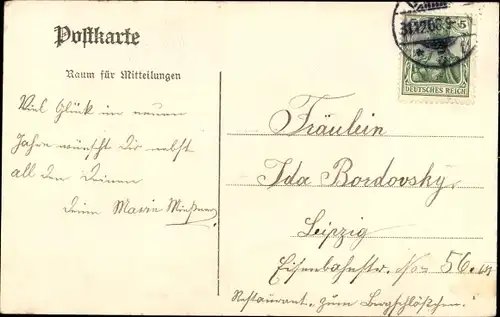 Postkarte
Raum für Mitteilungen
Viel Glück im neuen
Jahre wünscht Dir nebst
all den Deinen
Deine Maria
31.12.06.
5
DEUTSCHES REICH
Fräulein
Ida Bordovsky
Leipzig
Eisenbahnstr. No 56
Restaurant "zum Bergschlößchen."